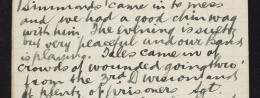 Simmonds came in to mess
and we had a good chin wag
with him. The evening is
but very peaceful and our Band
is playing. Tales came in of
crowds of wounded going thro'
from the 3rd Division and
of plenty of prisoners Sgt.